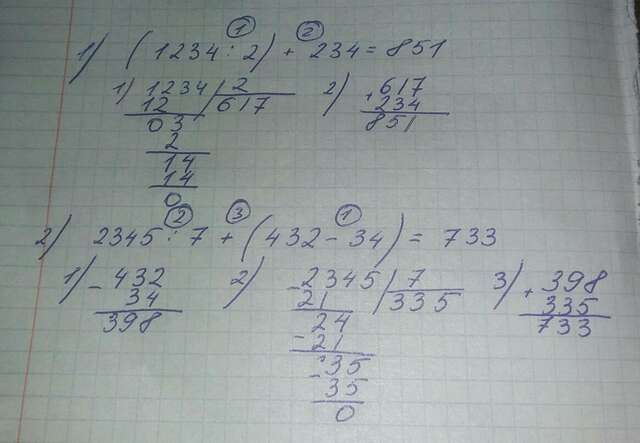 ① ②
1) (1234 : 2) + 234 = 851
1) 1234 | 2 2) + 617
12 617 234
03 851
2
14
14
0
② ③ ①
2) 2345 : 7 + (432 - 34) = 733
1) - 432 2) - 2345 | 7 3) + 398
34 21 335 335
398 24 733
- 21
- 35
35
0